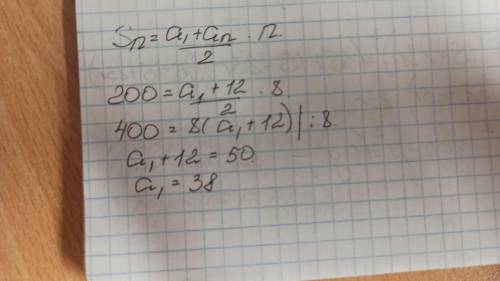 Sп = a₁+aп/2 · п.
200 = a₁+12/2 · 8
400 = 8(a₁+12) | :8.
a₁+12 = 50
a₁ = 38